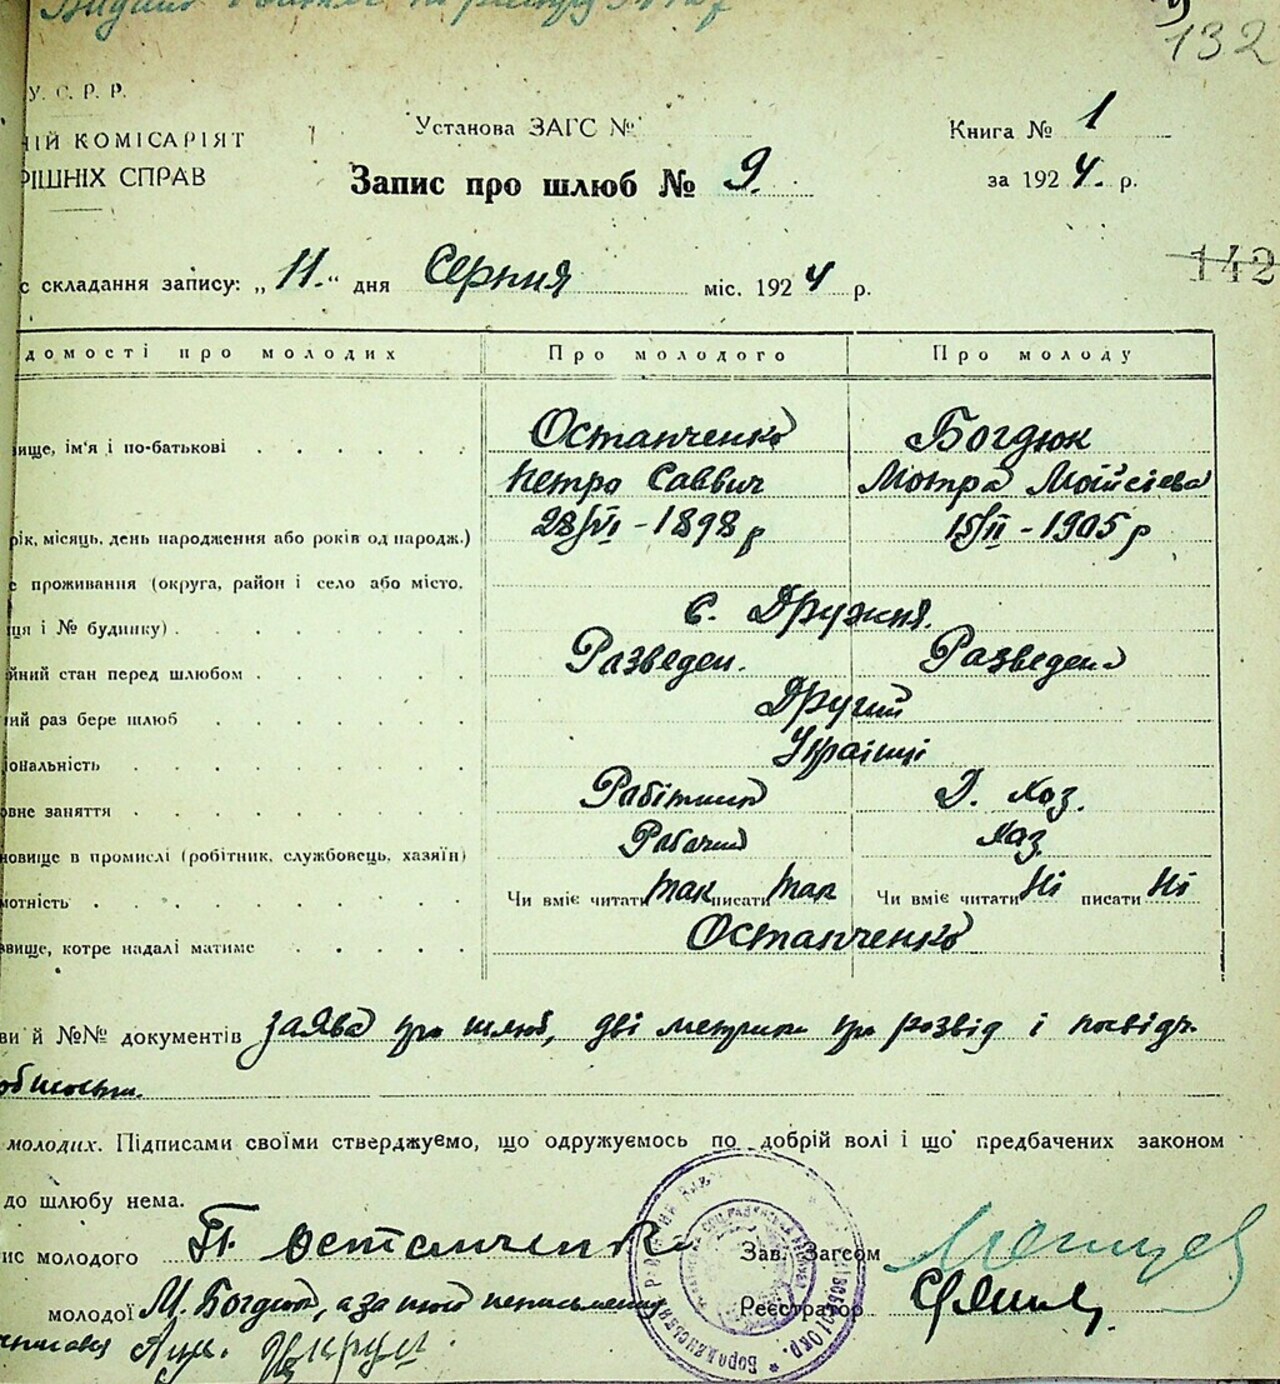 132
У. С. Р. Р.
НІЙ КОМІСАРІЯТ
РІШНІХ СПРАВ
Установа ЗАГС №
Книга № 1
Запис про шлюб № 9.
за 1924. р.
142
с складання запису: „11.“ дня Серпня міс. 1924 р.
домості про молодих Про молодого Про молоду
вище, ім'я і по-батькові Остапченко Богдюк
Петро Саввич Мотра Мойсієва
рік, місяць, день народження або років од народж.) 28/VI - 1898 р 15/II - 1905 р
є проживання (округа, район і село або місто,
ця і № будинку) с. Дружня.
йний стан перед шлюбом Разведен. Разведена
ий раз бере шлюб Другий
іональність Українці
овне заняття Робітник Д. хоз.
новище в промислі (робітник, службовець, хазяїн) Рабочий Хаз
мотність Чи вміє читати так писати так Чи вміє читати Ні писати Ні
звище, котре надалі матиме Остапченко
ви й №№ документів заява про шлюб, дві метрики про розвід і посвідч.
молодих. Підписами своїми стверджуємо, що одружуємось по добрій волі і що предбачених законом
до шлюбу нема.
ис молодого П. Остапченко Зав. Загсом
молодої М. Богдюк, а за нею неписьменну Реєстратор